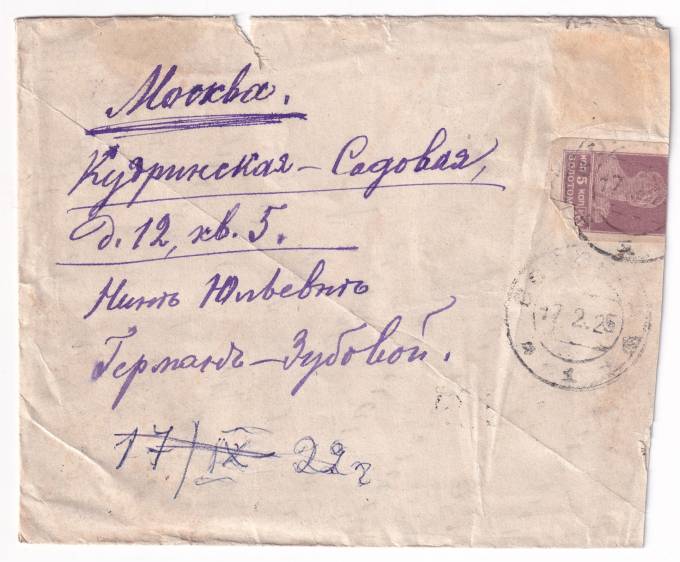 Москва.
Кудринская-Садовая,
д. 12, кв. 5.
Нинѣ Юльевнѣ
Германъ-Зубовой.
17/IX 22г
5 КОП.
ЗОЛОТОМ
17.2.25
1